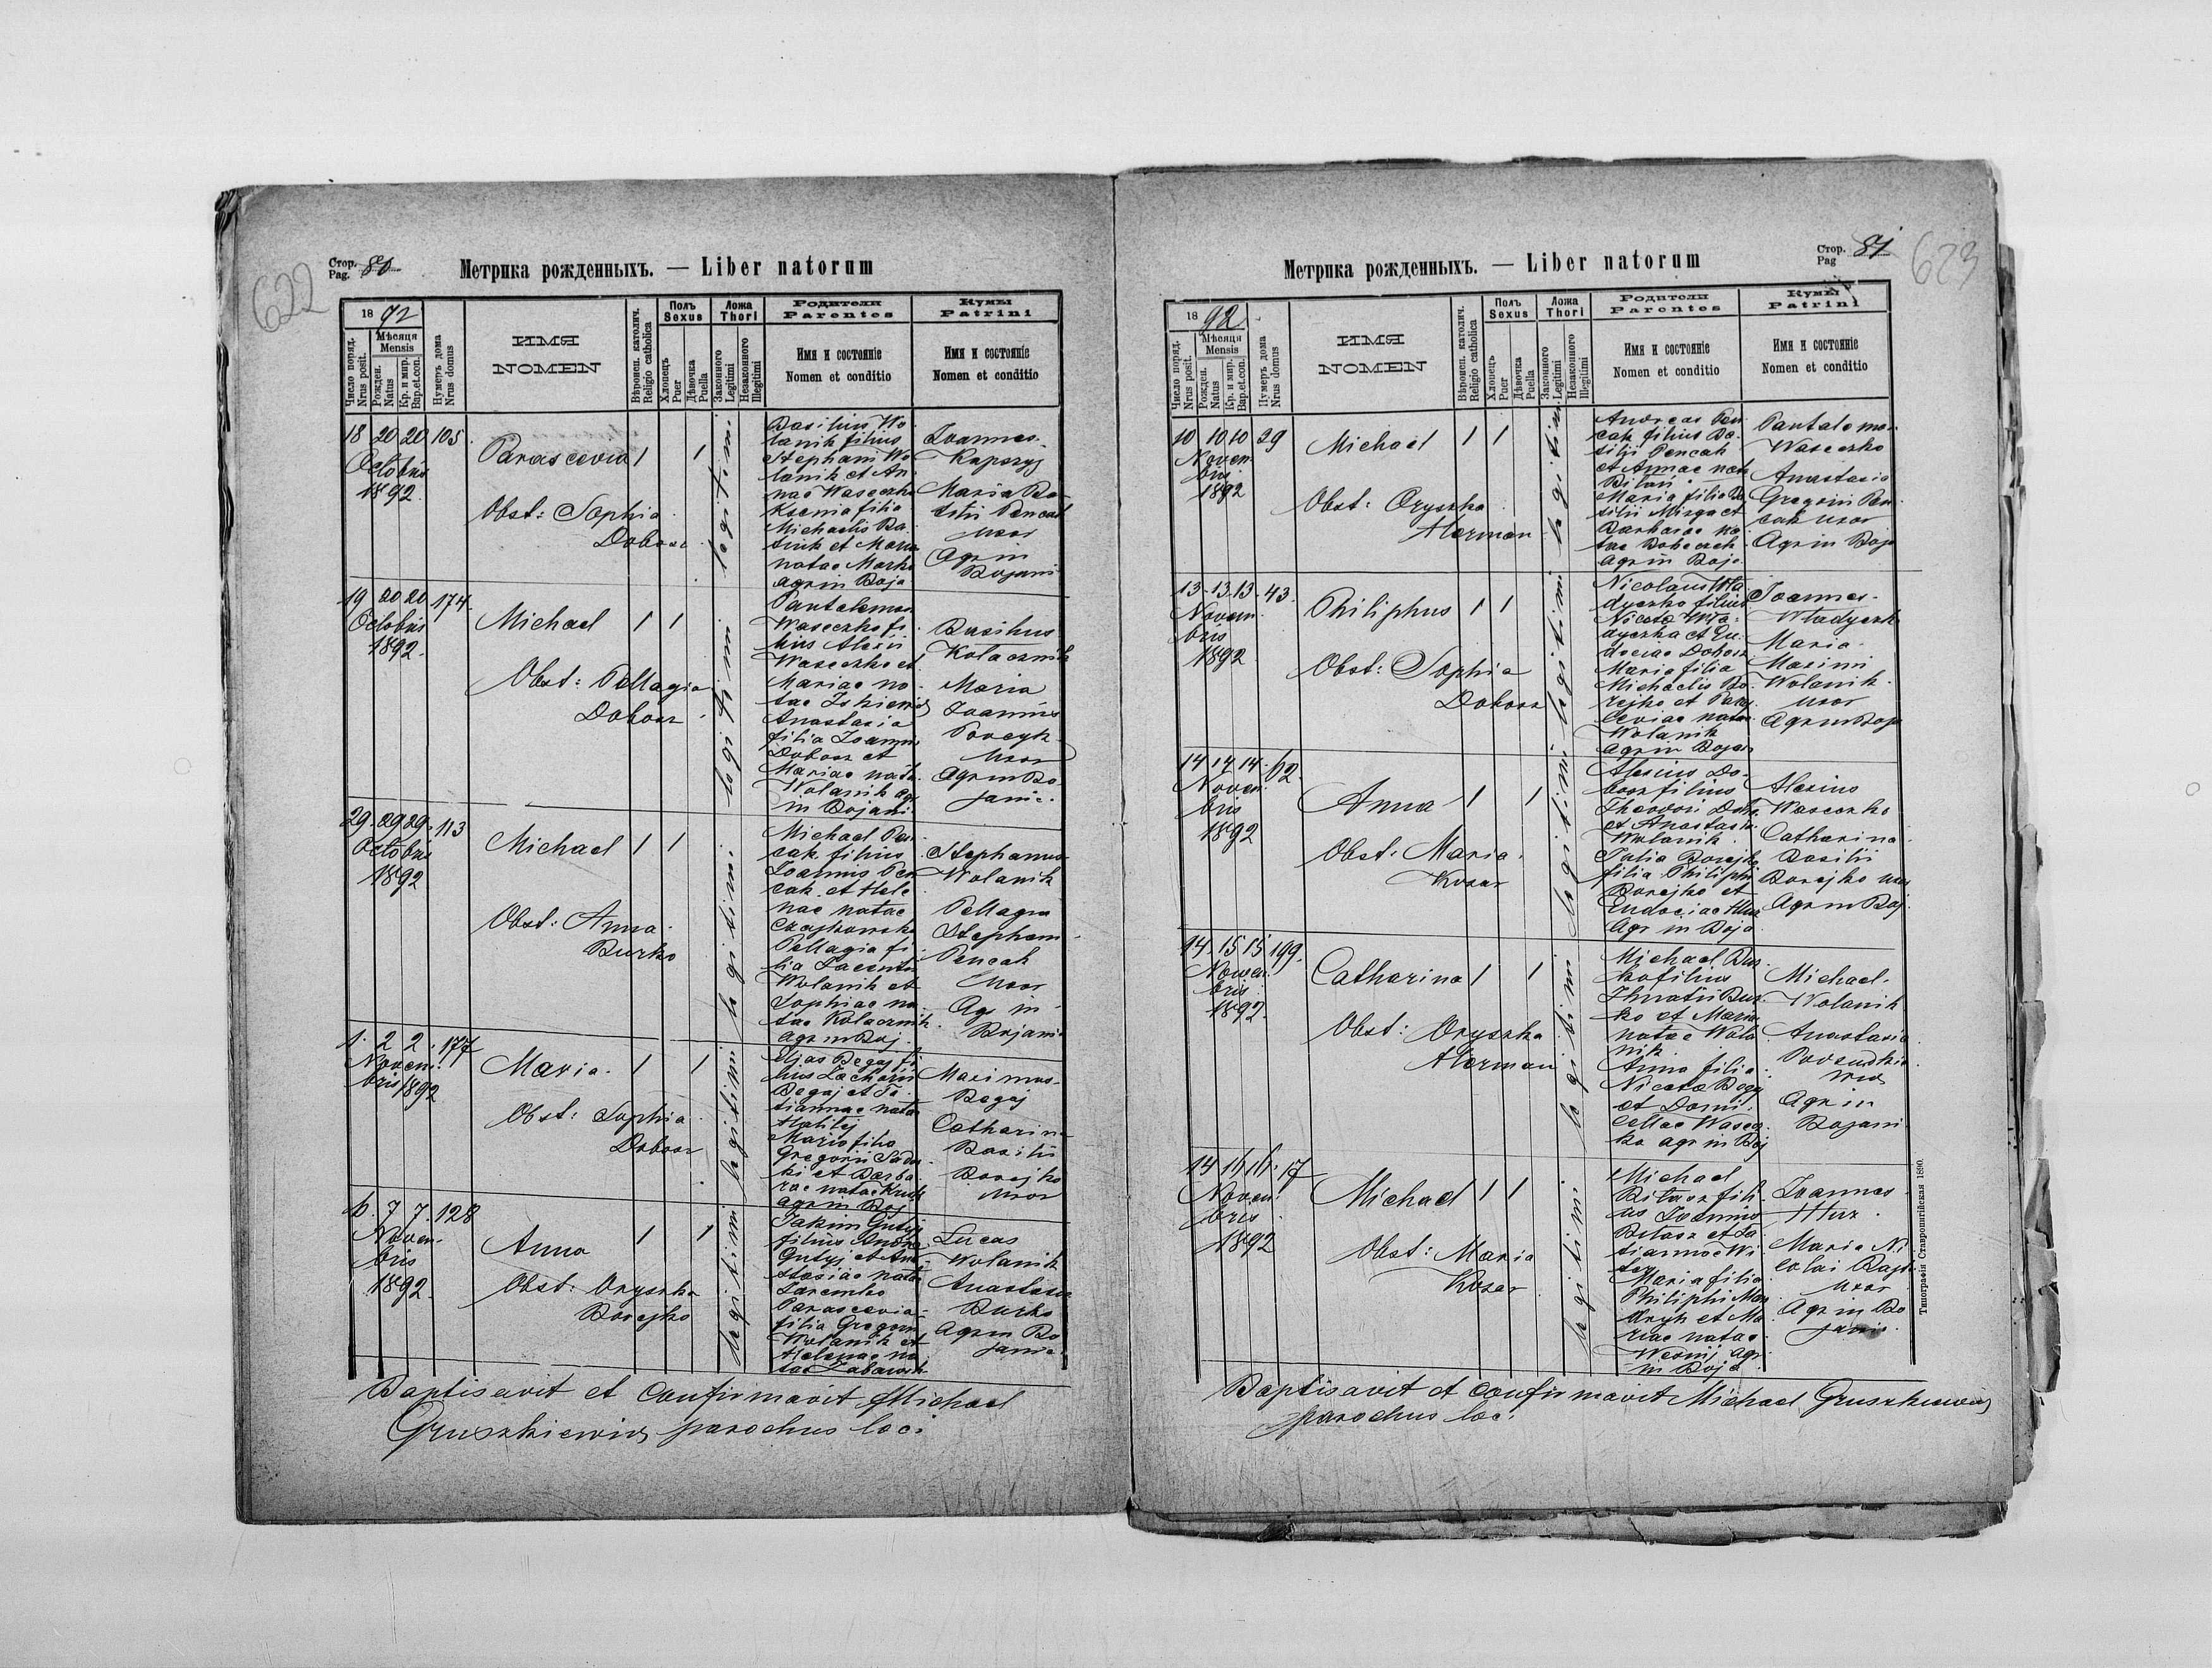 622
Стор.
Pag. 80
Метрика рожденныхъ. — Liber natorum
1892
Число поряд.
Nrus posit.
Мѣсяця
Mensis
Рожден.
Natus
Кр. и мир.
Bap.et.con.
Нумеръ дома
Nrus domus
ИМЯ
NOMEN
Вѣроисп. католич.
Religio catholica
Полъ
Sexus
Хлопецъ
Puer
Дѣвочка
Puella
Ложа
Thori
Законного
Legitimi
Незаконного
Illegitimi
Родители
Parentes
Имя и состоянiе
Nomen et conditio
Кумы
Patrini
Имя и состоянiе
Nomen et conditio
18 20 20 105
Octobris
1892.
Parascevia 1 1
Obst: Sophia
Dobosz
legitimi
Basilius Wo
lanik filius
Stephani Wo
lanik et An
nae Waseczko
Ksenia filia
Michaelis
et Maria
natae Marko
agr in Boja
Joannes
Maria Ba
silii Pencak
uxor
Agr in
Bojani
19 20 20 174.
Octobris
1892.
Michael 1 1
Obst: Pellagia
Dobosz
legitimi
Pantelemon
Waseczko fi
lius Alexii
Waseczko et
Mariae na
tae
Anastasia
filia Joannis
Dobosz et
Mariae nata
Wolanik agr
in Bojani
Basilius
Kolacznik
Maria
Joannis
uxor
Agr in Bo
janic.
29. 29 29. 113
Octobris
1892
Michael 1 1
Obst: Anna
Burko
legitimi
Michael Pen
cak filius
Joannis Pen
cak et Hele
nae natae
Czajkowska
Pellagia fi
lia
Wolanik et
Sophiae na
tae Kolacznik
agr in Boj
Stephanus
Wolanik
Pellagia
Stephani
Pencak
uxor
Ag in
Bojani
1. 2 2. 177
Novem
bris 1892
Maria 1 1
Obst: Sophia
Dobosz
legitimi
Elias Begaj fi
lius Zacharii
Begaj et Ta
tiannae nata
Maria filia
Gregorii
et Barba
rae natae
agr in Boj
Maximus
Begaj
Catharina
Basilii
Borejko
uxor
6. 7 7. 128
Novem
bris
1892.
Anna 1 1
Obst: Oryszka
Borejko
legitimi
Jakim Gutyj
filius
Gutyj et Ana
stasiae nata
Zaremba
Parascevia
filia Gregorii
Wolanik et
Helenae na
tae
Lucas
Wolanik
Anastasia
Burko
Agr in Bo
janic.
Baptisavit et confirmavit Michael
Gruszkiewicz parochus loci
623
Стор.
Pag 81
Метрика рожденныхъ. — Liber natorum
1892
Число поряд.
Nrus posit.
Мѣсяця
Mensis
Рожден.
Natus
Кр. и мир.
Bap.et.con.
Нумеръ дома
Nrus domus
ИМЯ
NOMEN
Вѣроисп. католич.
Religio catholica
Полъ
Sexus
Хлопецъ
Puer
Дѣвочка
Puella
Ложа
Thori
Законного
Legitimi
Незаконного
Illegitimi
Родители
Parentes
Имя и состоянiе
Nomen et conditio
Кумы
Patrini
Имя и состоянiе
Nomen et conditio
10 10 10 29
Novem
bris
1892
Michael 1 1
Obst: Oryszka
Herman
legitimi
Andreas Pen
cak filius Ba
silii Pencak
et Annae nata
Maria filia Ba
silii Mizga et
Barbarae na
tae
agr in Boja
Pantalemon
Waseczko
Anastasia
Gregorii Pen
cak uxor
Agr in Boja
13. 13. 13. 43.
Novem
bris
1892
Philiphus 1 1
Obst: Sophia
Dobosz
legitimi
Nicolaus Wla
dyczko filius
Nicetae Wla
dyczka et Eu
dociae Dobosz
Maria filia
Michaelis Bo
rejko et Para
sceviae natae
Wolanik
agr in Bojan
Joannes
Wladyczk
Maria
Maximi
Wolanik
uxor
Agr in Boja
14 14 14. 62.
Novem
bris
1892
Anna 1 1
Obst: Maria
Kozar
legitimi
Alexius Do
bosz filius
Theodori Dobo
et Anastasia
Wolanik
Julia Borejko
filia Philiphi
Borejko et
Eudociae Hur
Agr in Boja
Alexius
Waseczko
Catharina
Basilii
Borejko uxor
Agr in Boj.
14. 15 15 199.
Novem
bris
1892.
Catharina 1 1
Obst: Oryszka
Herman
legitimi
Michael Bur
ko filius
Ihnatii Bur
ko et Maria
natae Wola
nik
Anna filia
Nicetae Begaj
et Domi
cellae Wasecz
ko agr in Boj
Michael
Wolanik
Anastasia
Agr in
Bojani
14 16 16. 17
Novem
bris
1892
Michael 1 1
Obst: Maria
Kozar
legitimi
Michael
Bitasz fili
us Joannis
Bitasz et Ta
tiannae
Maria filia
Philiphi
et Ma
riae natae
agr
in Boja
Joannes
Hur
Maria Ni
colai
uxor
Agr in Bo
janic
Baptisavit et confirmavit Michael Gruszkiewicz
parochus loci
Типографія Ставропигійская 1890.